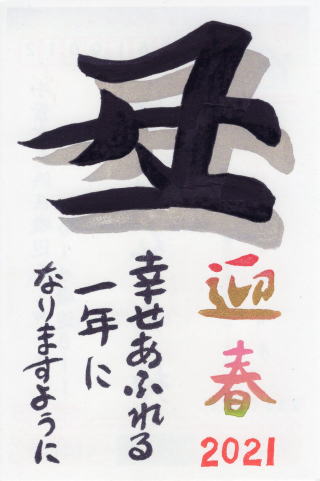 丑
迎春
2021
幸せあふれる
一年に
なりますように